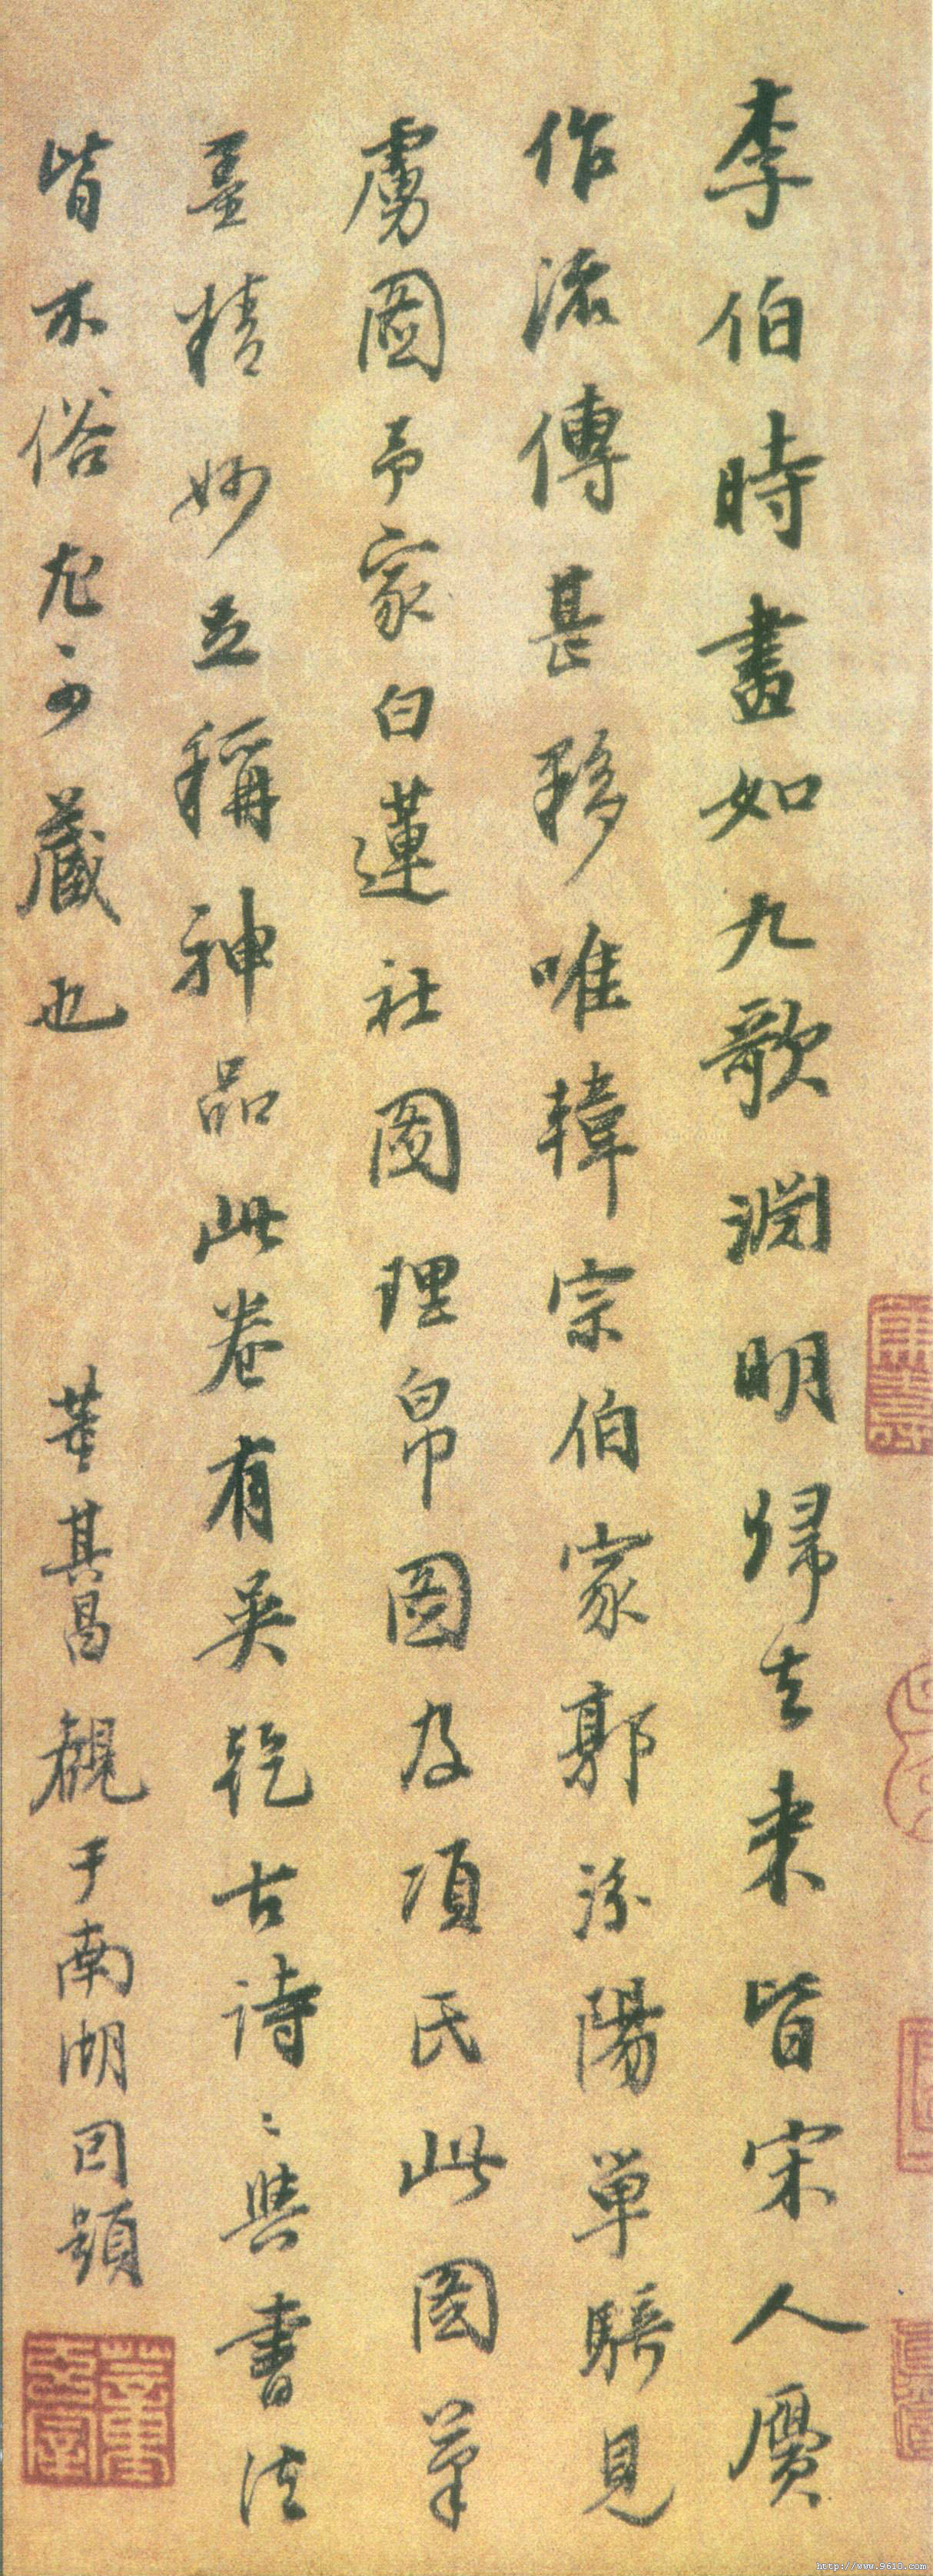 李伯時畫如九歌淵明歸去来皆宋人贋
作流傳甚夥唯韓宗伯家郭汾陽單騎見
虜圖予家白蓮社圖理帛圖及項氏此圖筆
墨精妙並稱神品此卷有吳說古詩〻與書法
皆不俗尤可藏也
董其昌觀于南湖因題
http://www.9610.com